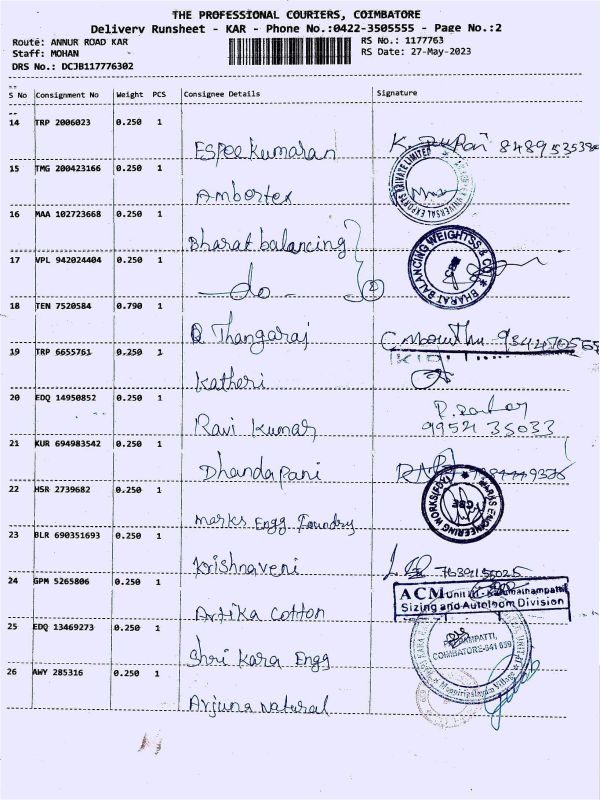 THE PROFESSIONAL COURIERS, COIMBATORE
Delivery Runsheet - KAR - Phone No.:0422-3505555 - Page No.:2
Route: ANNUR ROAD KAR
RS No.: 1177763
Staff: MOHAN
RS Date: 27-May-2023
DRS No.: DCJB117776302
S No Consignment No Weight PCS Consignee Details Signature
14 TRP 2006023 0.250 1
Espee Kumaran
15 TMG 200423166 0.250 1
Ambertex
16 MAA 102723668 0.250 1
Bharat balancing
17 VPL 942024404 0.250 1
do
2
BHARAT BALANCING WEIGHTSS & CO
18 TEN 7520584 0.790 1
Thangaraj
19 TRP 6655761 0.250 1
Katheri
20 EDQ 14950852 0.250 1
Ravi Kumar
21 KUR 694983542 0.250 1
Dhandapani
22 HSR 2739682 0.250 1
marks Engg Foundry
23 BLR 690351693 0.250 1
Krishnaveni
24 GPM 5265806 0.250 1
ACM Unit
Sizing and Autoloom Division
Artika cotton
25 EDQ 13469273 0.250 1
COIMBATORE-641 659
Shri Kara Engg
26 AWY 285316 0.250 1
Arjuna natural